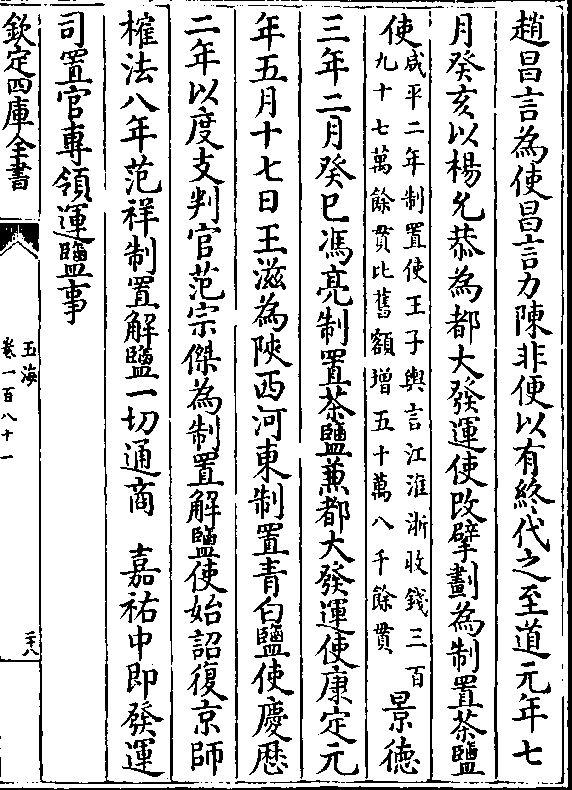 趙昌言為使昌言力陳非便以有終代之至道元年七
月癸亥以楊允恭為都大發運使改擘劃為制置茶鹽
使咸平二年制置使王子輿言江淮浙收錢三百
九十七萬餘貫比舊額增五十萬八千餘貫
景德
三年二月癸巳馮亮制置茶鹽兼都大發運使康定元
年五月十七日王滋為陜西河東制置青白鹽使慶厯
二年以度支判官范宗傑為制置解鹽使始詔復京師
榷法八年范祥制置解鹽一切通商　嘉祐中即發運
司置官專領運鹽事
欽定四庫全書
玉海
卷一百八十一
二十八